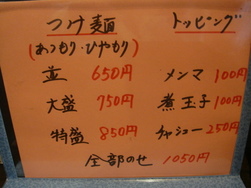 つけ麺
(あつもり・ひやもり)
並 650円
大盛 750円
特盛 850円
トッピング
メンマ 100円
煮玉子 100円
チャシュー 250円
全部のせ 1050円